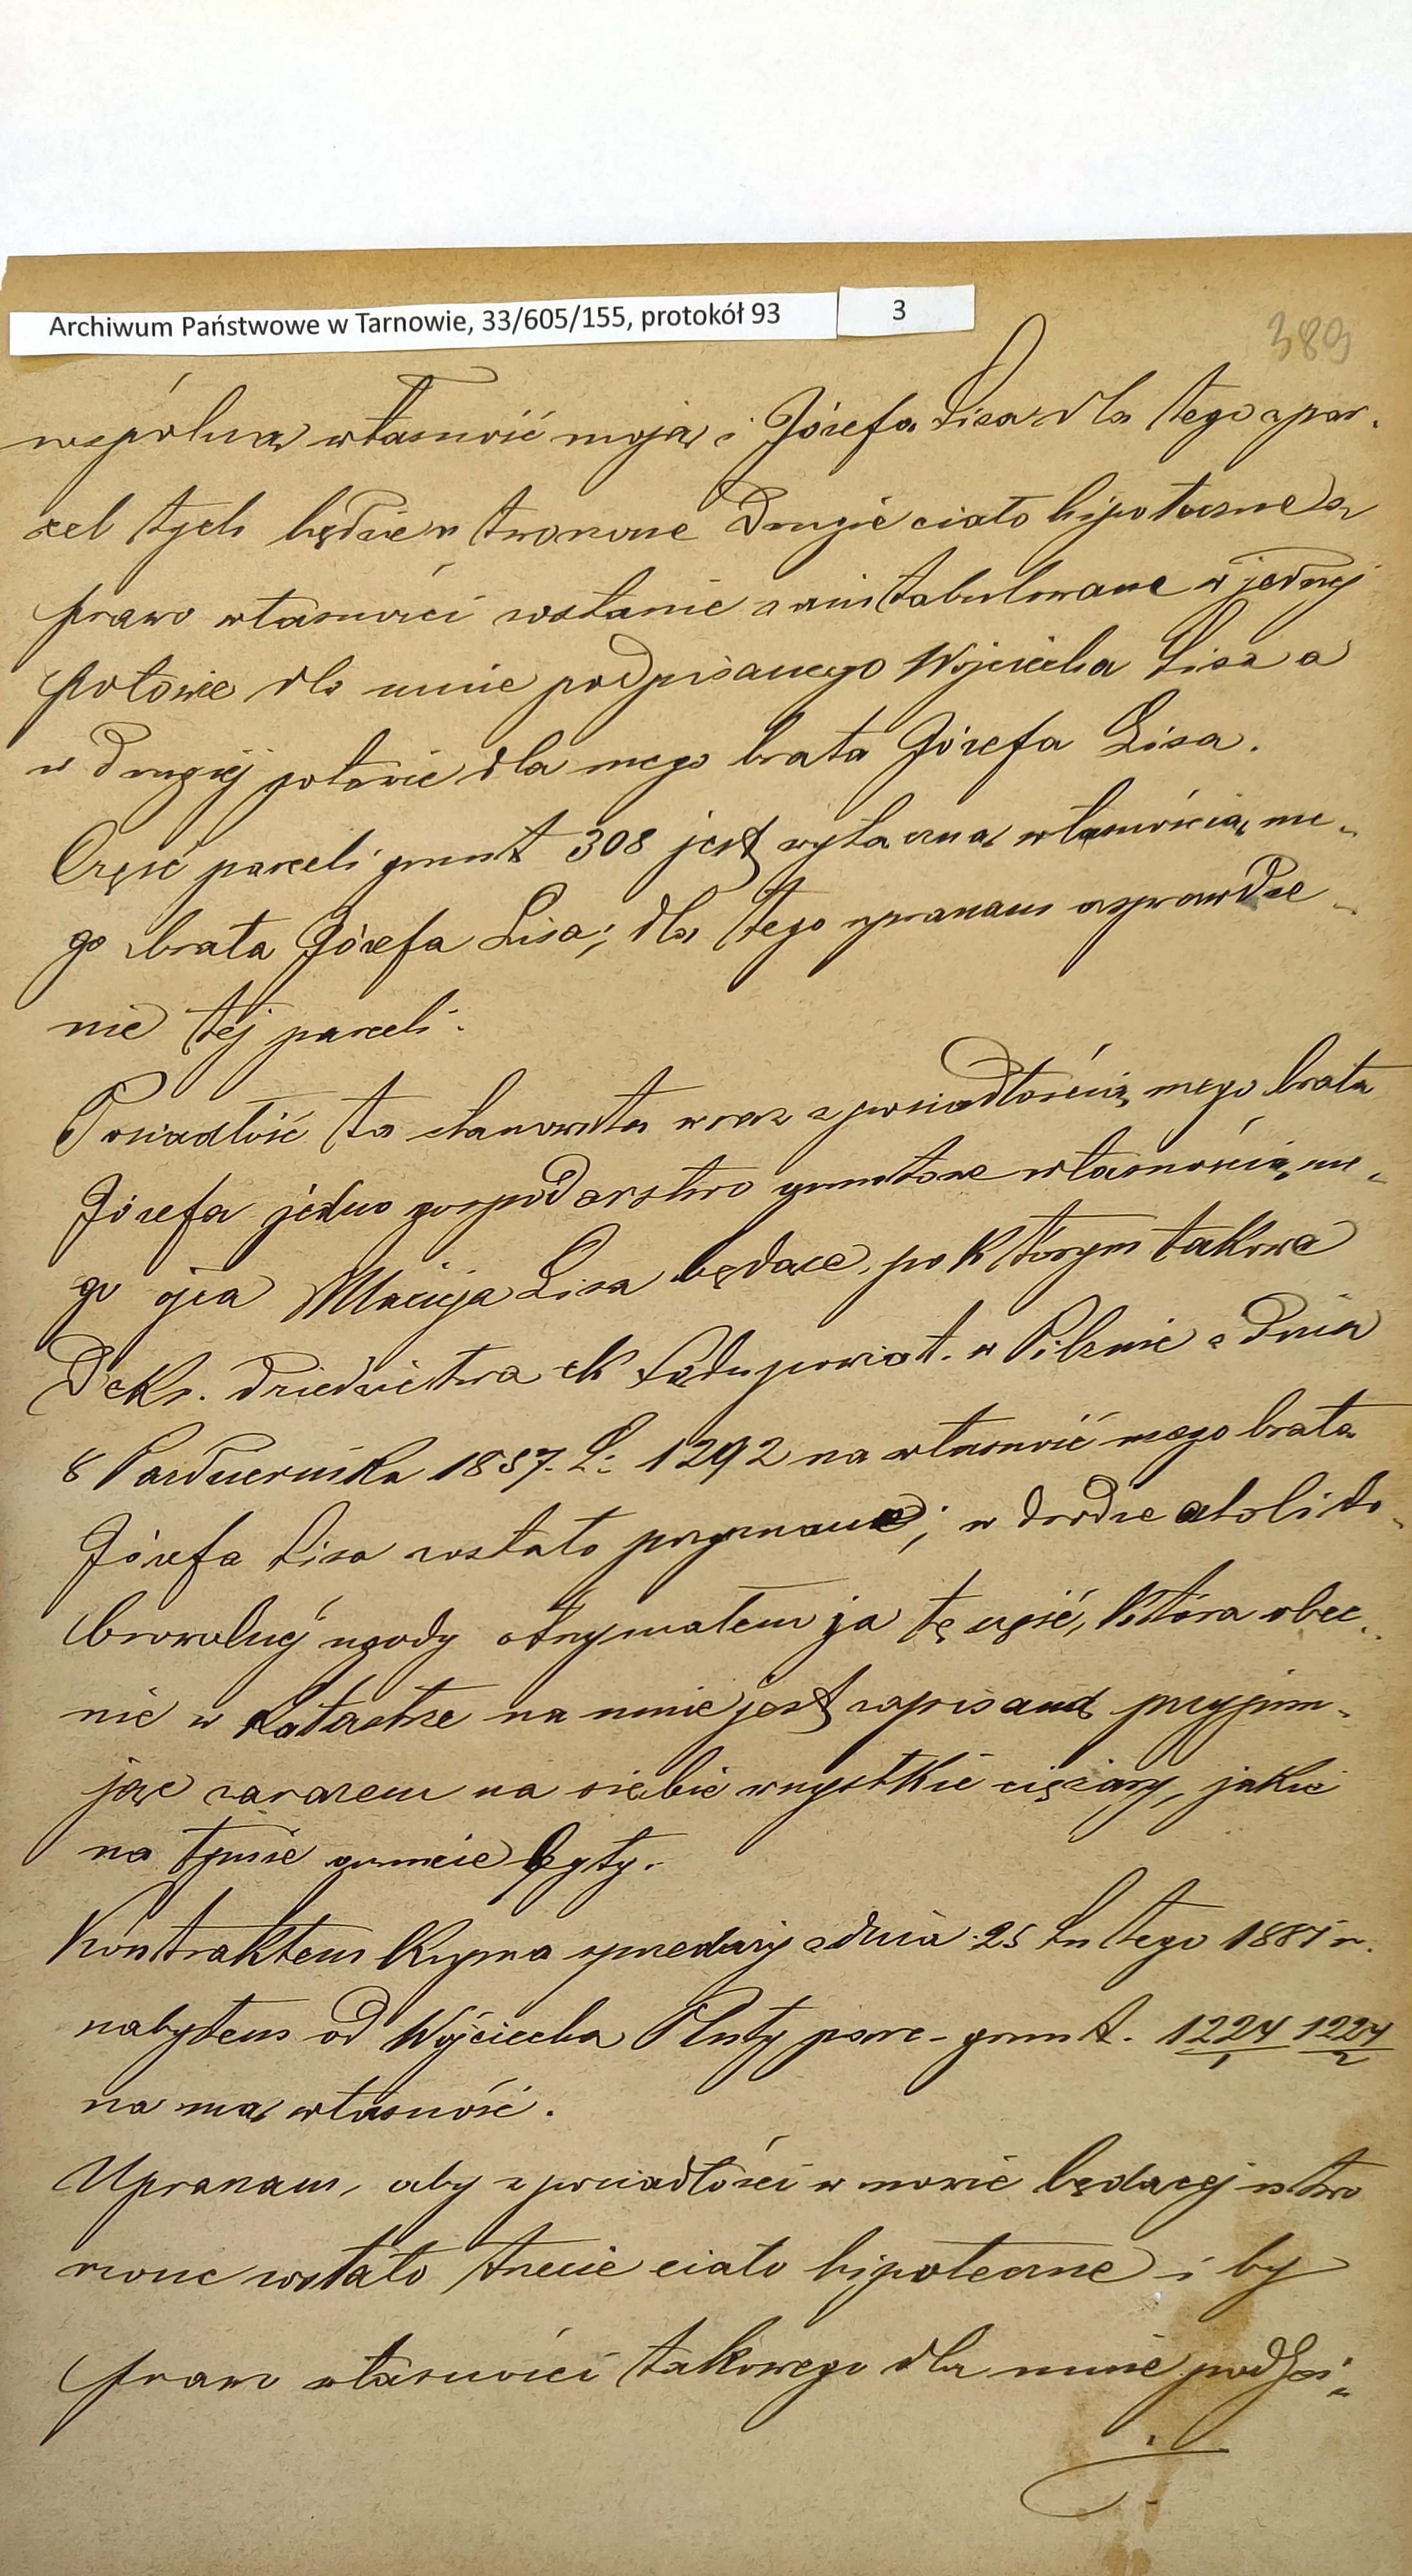 Archiwum Państwowe w Tarnowie, 33/605/155, protokół 93
3
389
wspólną własność moją i Józefa Lisa dla tego z par-
cel tych będzie utworzone drugie ciało hipoteczne a
prawo własności zostanie zaintabulowane w jednej
połowie dla mnie podpisanego Wojciecha Lisa a
w drugiej połowie dla mego brata Józefa Lisa.
Część parceli grunt 308 jest wyłączną własnością me-
go brata Józefa Lisa; dla tego upraszam o sprawdze-
nie tej parceli.
Posiadłość ta stanowiła wraz z posiadłością mego brata
Józefa jedno gospodarstwo gruntowe własnością me-
go ojca Macieja Lisa będące, po którym takowe
Dekr. dziedzictwa ck Sądu powiat. w Pilznie z dnia
8 Października 1857. L: 1292 na własność mego brata
Józefa Lisa zostało przyznane; w drodze atoli do-
browolnej ugody otrzymałem ja tę część, która obec-
nie w katastrze na mnie jest zapisaną przyjmu-
jąc zarazem na siebie wszystkie ciężary, jakie
na tymże gruncie były.
Kontraktem kupna sprzedaży z dnia 25 Lutego 1881 r.
nabyłem od Wojciecha Pluty parc. grunt. 1224/1 1224/2
na mą własność.
Upraszam, aby z posiadłości w mowie będącej utwo
rzone zostało trzecie ciało hipoteczne i by
prawo własności takowego dla mnie podpi-